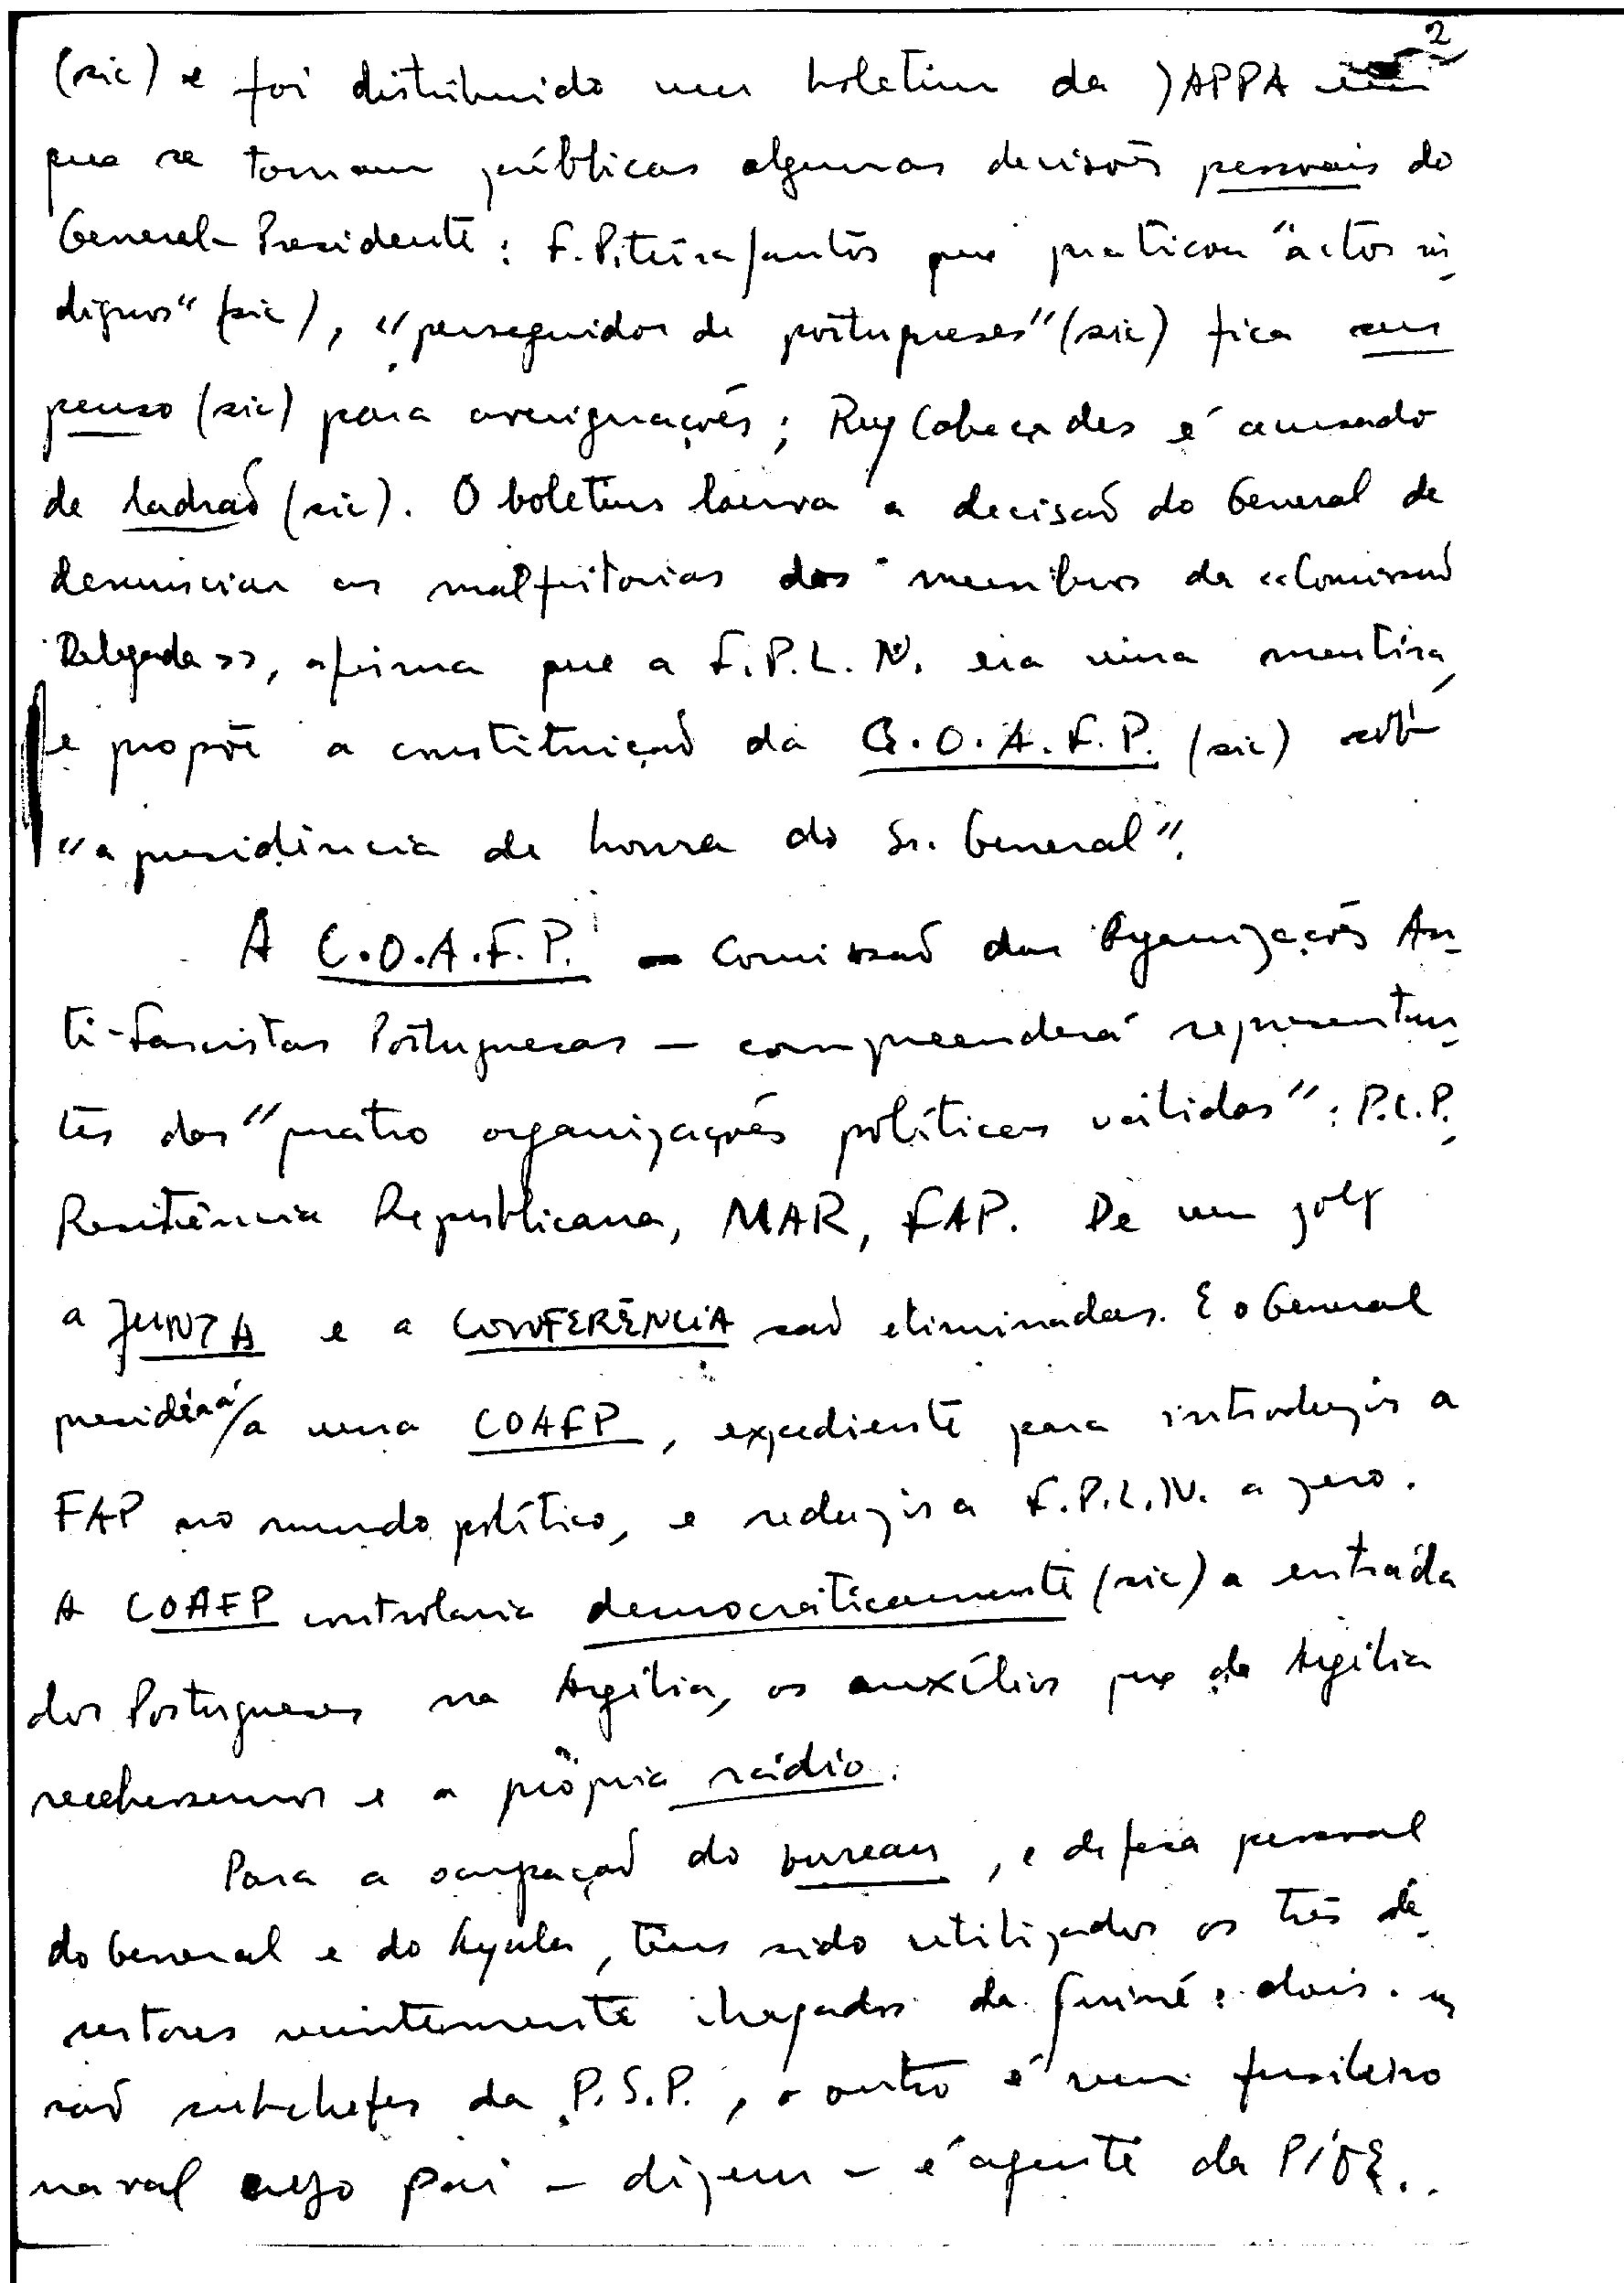 2
(sic) e foi distribuido um boletim da JAPPA em
que se tornam públicas algumas decisões pessoais do
General-Presidente: F. Piteira Santos que praticou "actos in
dignos" (sic), "perseguidor de portugueses" (sic) fica sus
penso (sic) para averiguações; Ruy Cabeçadas é acusado
de ladrão (sic). O boletim louva a decisão do General de
denunciar as malfeitorias dos membros da «Comissão
Delegada», afirma que a F.P.L.N. era uma mentira,
e propõe a constituição da C.O.A.F.P. (sic) sob
"a presidência de honra do Sr. General".
A C.O.A.F.P. - Comissão das Organizações An
ti-Fascistas Portuguesas - compreenderá representan
tes das "quatro organizações políticas válidas": P.C.P.,
Resistência Republicana, MAR, FAP. De um golpe
a JUNTA e a CONFERÊNCIA são eliminadas. E o General
presidirá/a uma COAFP, expediente para introduzir a
FAP no mundo político, e reduzir a F.P.L.N. a zero.
A COAFP controlaria democráticamente (sic) a entrada
dos Portugueses na Argélia, os auxílios que da Argélia
recebessemos e a própria rádio.
Para a ocupação do bureau, e defesa pessoal
do General e do Ayala, têm sido utilizados os três de
sertores recentemente chegados da Guiné: dois
são subchefes da P.S.P., o outro é um fusileiro
naval cujo pai - dizem - é agente da PIDE.